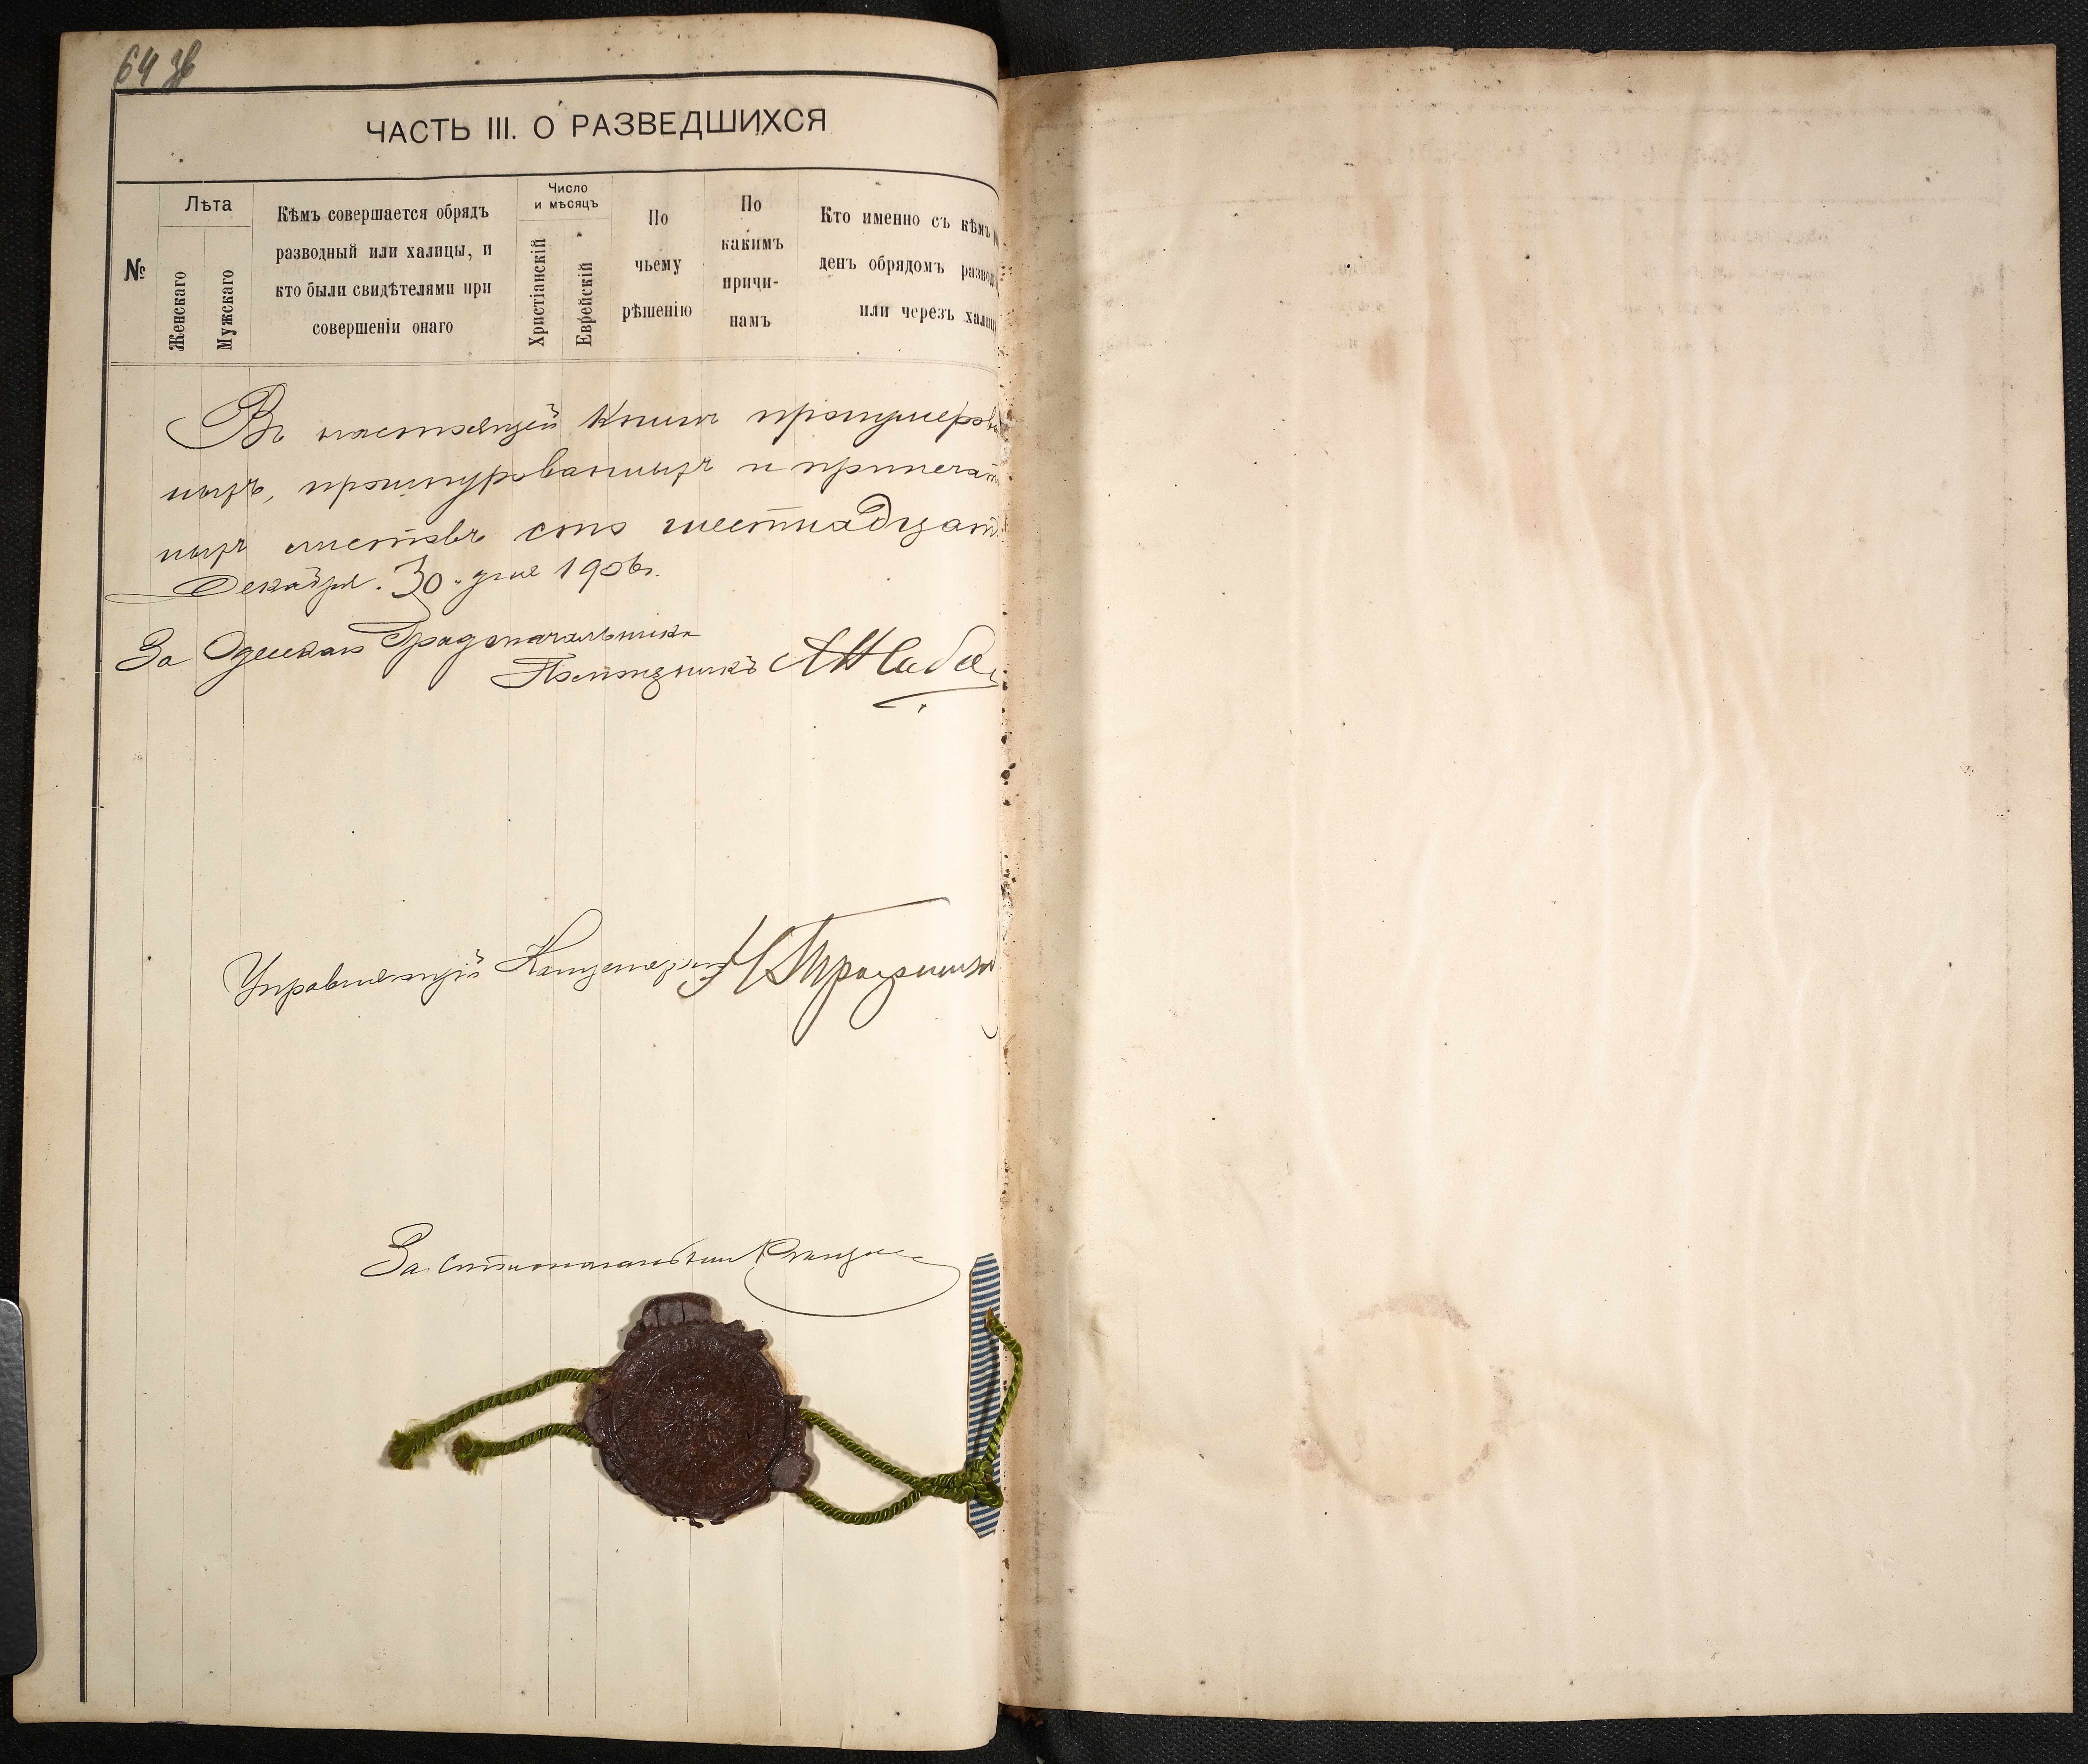 64 зв
ЧАСТЬ III. О РАЗВЕДШИХСЯ
№
Лѣта
Женскаго
Мужскаго
Кѣмъ совершается обрядъ
разводный или халицы, и
кто были свидѣтелями при
совершеніи онаго
Число
и мѣсяцъ
Христіанскій
Еврейскій
По
чьему
рѣшенію
По
какимъ
причи-
намъ
Кто именно съ кѣмъ
денъ обрядомъ разво
или черезъ халиц
Въ настоящей книгѣ пронумеров
ныхъ, прошнурованныхъ и припечат
ныхъ листовъ сто шестнадцать
Декабря 30 дня 1906г.
За Одесскаго Градоначальника
Помощникъ
Управляющій Канцеляріи
За Столоначальника